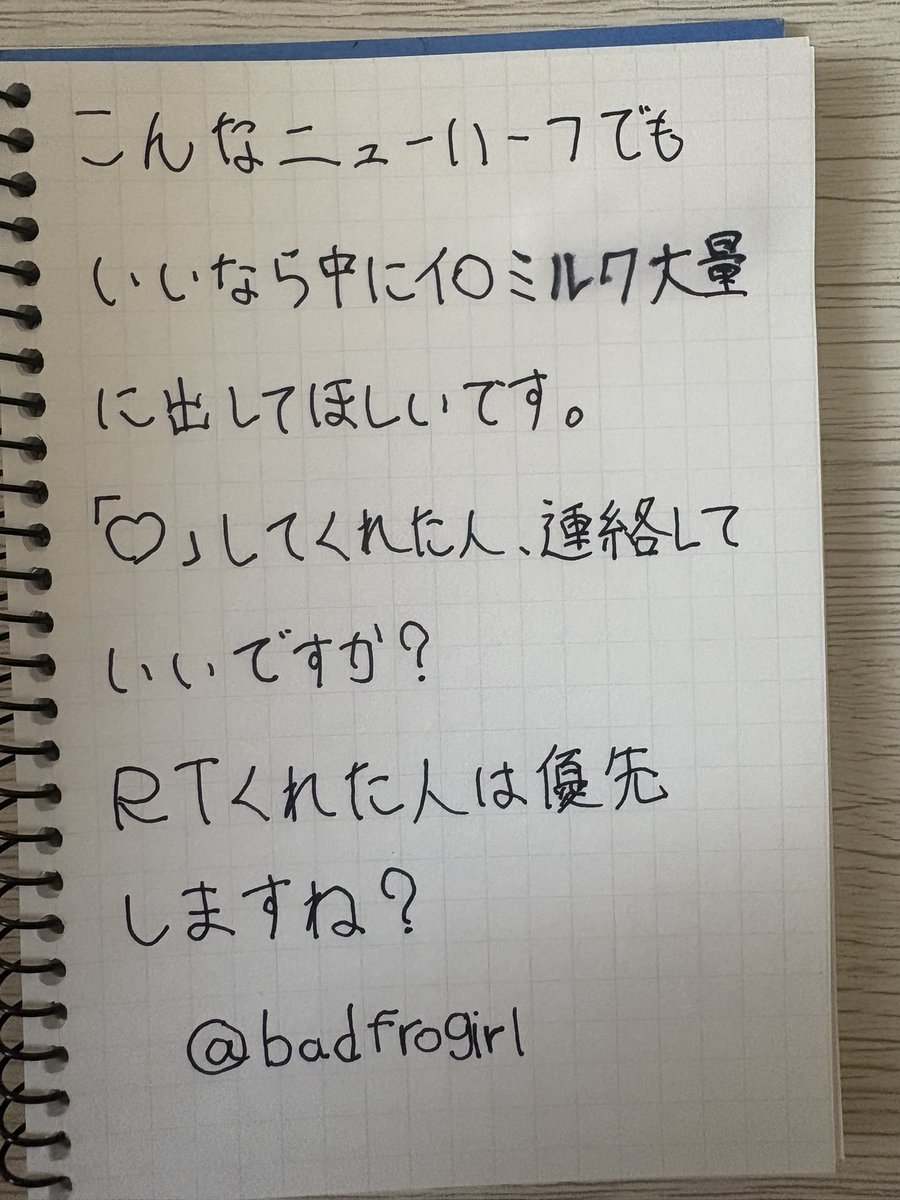 こんなニューハーフでも
いいなら中にイロミルク大量
に出してほしいです。
「♡」してくれた人、連絡して
いいですか?
RTくれた人は優先
しますね?
@badfrogirl